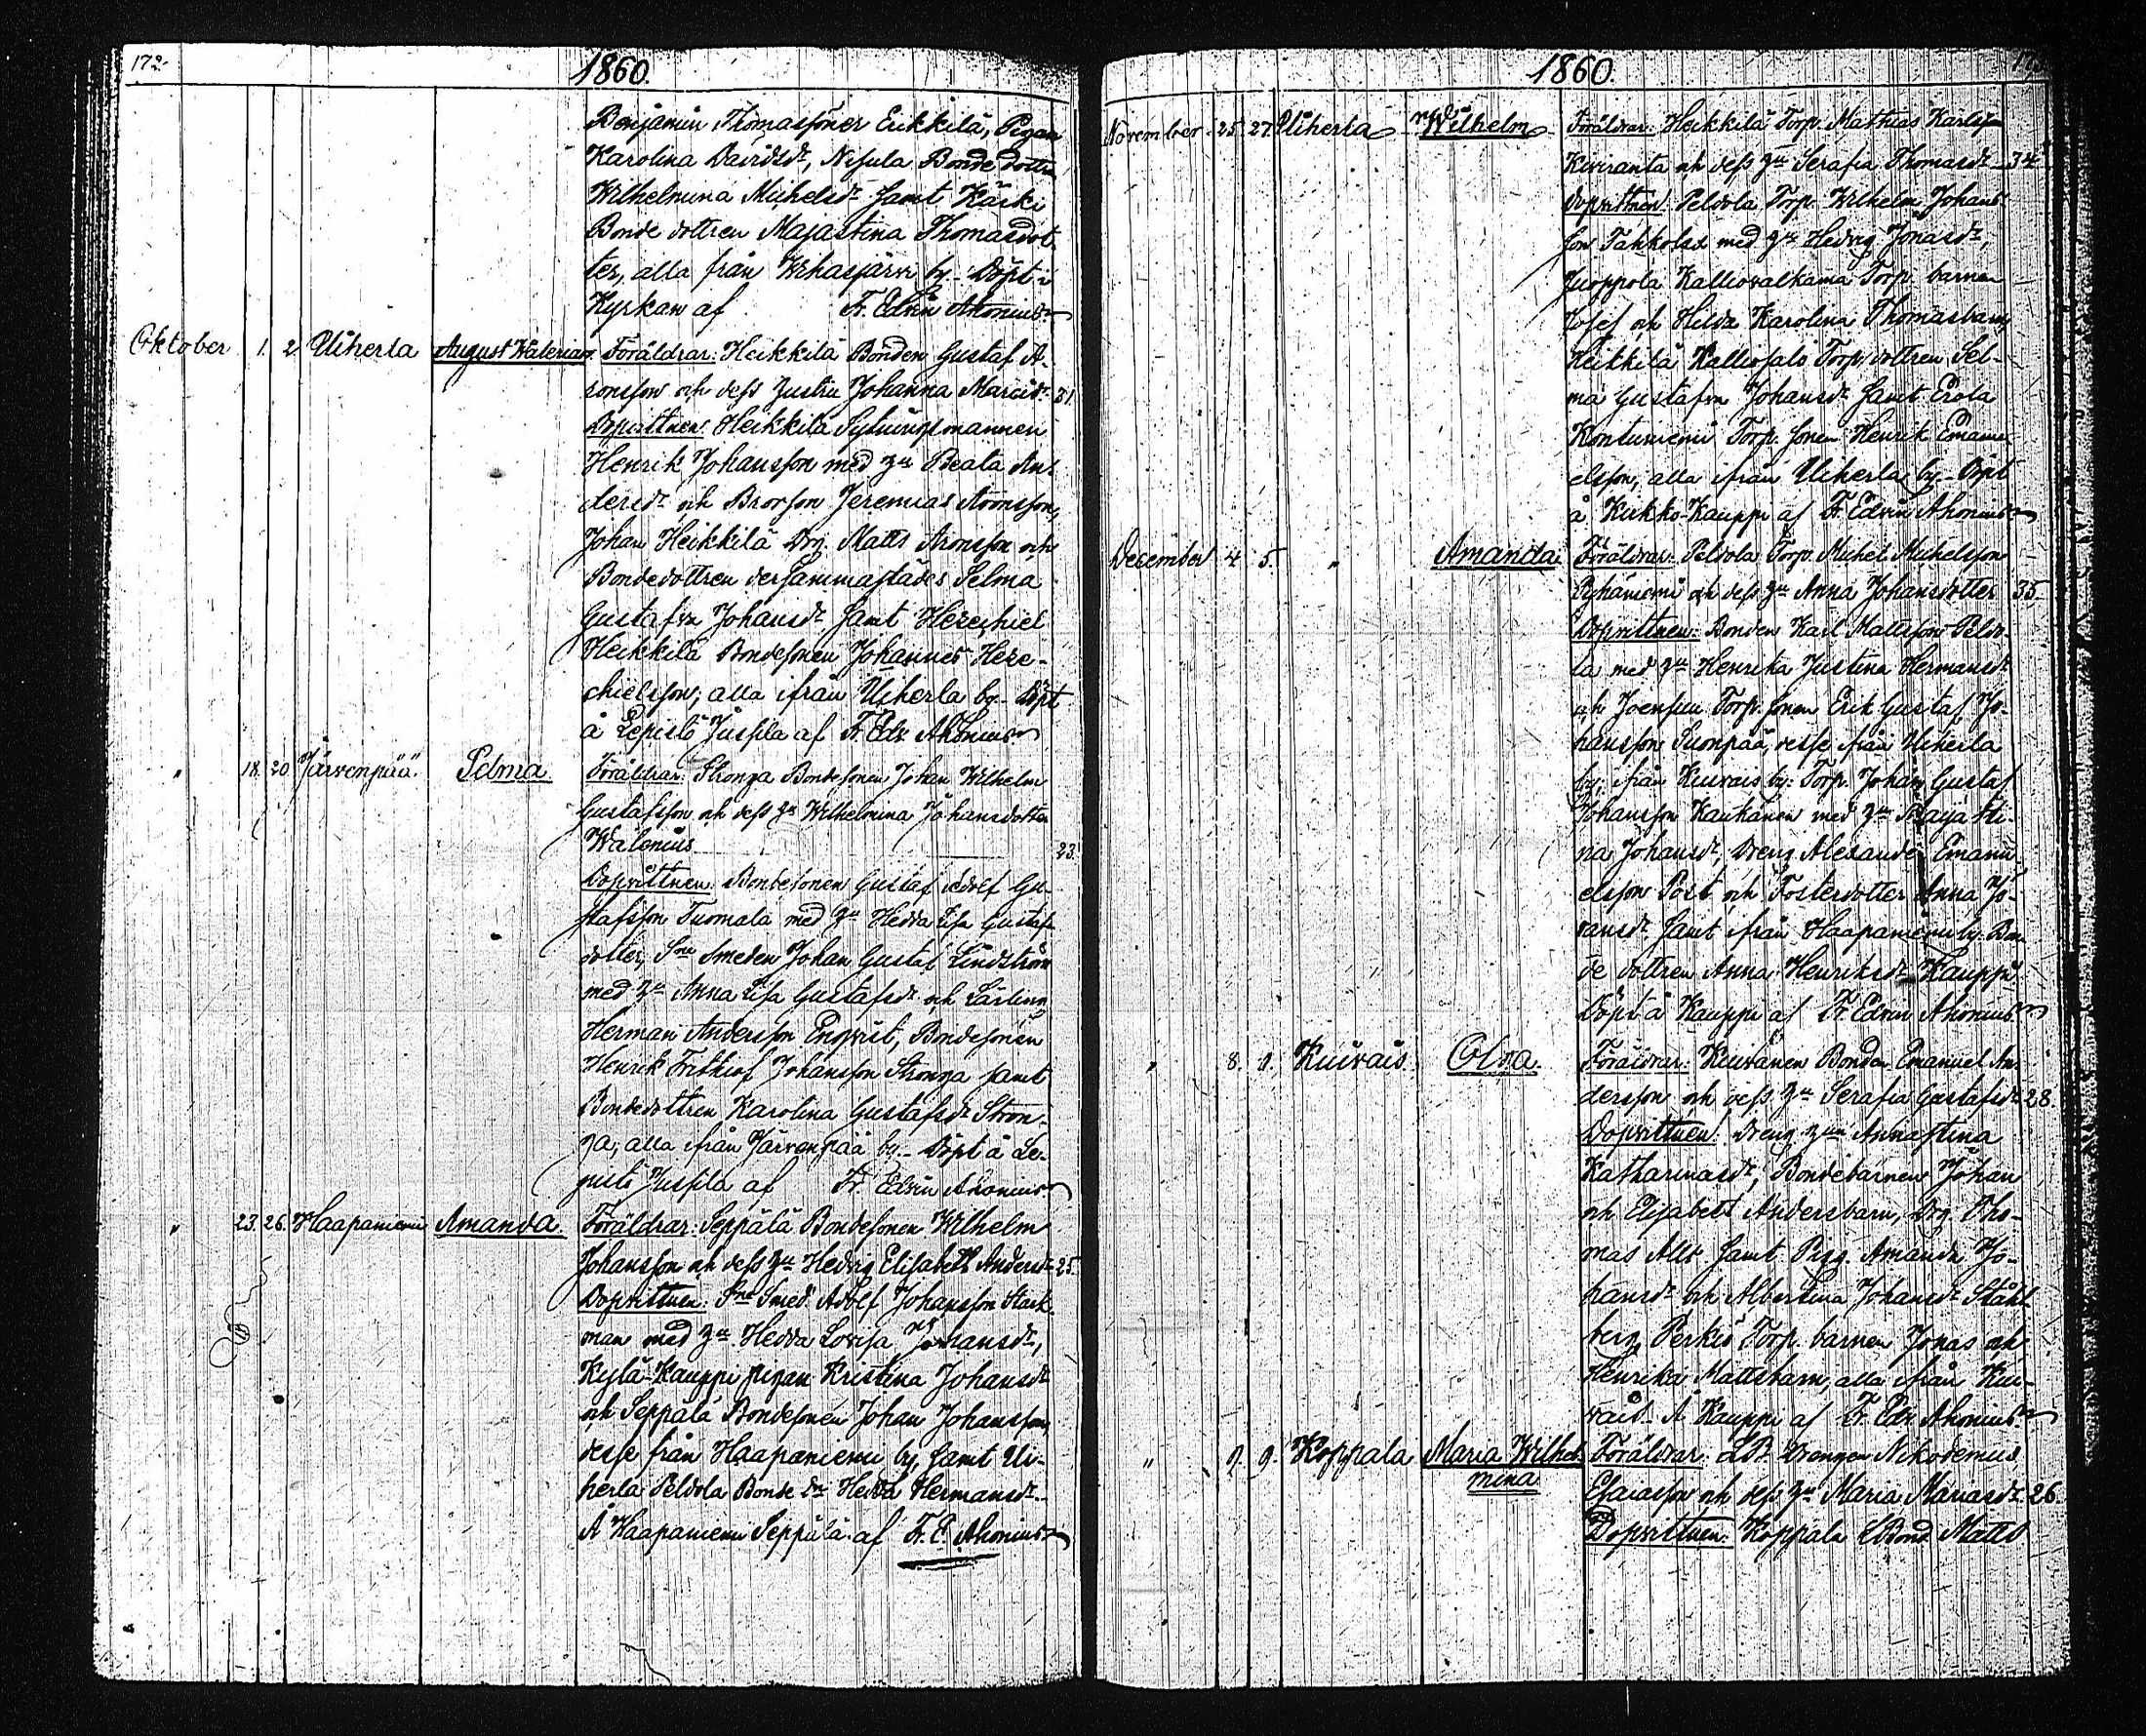 172.
1860.
Benjamin Thomasföner Erikkilä, Pigan
Karolina Davidsdr, Nisula Bonde dottren
Wilhelmina Michelsdr samt Käski
Bonde dottren Majastina Thomasdot-
ter, alla från Wihasjärvi by. Döpt i
Kyrkan af Fr. Edvin Ahonius
Oktober 1. 2. Uiherla August Walerian. Föräldrar: Heikkilä Bonden Gustaf A-
ronsson och dess hustru Johanna Marcidr 31
Dopvittnen: Heikkilä Sytningsmannen
Henrik Johansson med hu Beata An-
dersdr och Brorson Jeremias Aronsson,
Johan Heikkilä Drg. Matts Aronsson och
Bondedottren dersammastädes Selma
Gustafva Johansdr samt Hezechiel
Heikkilä Bondesonen Johannes Heze-
chielsson; alla ifrån Uiherla by. Döpt
å Lepistö Jussila af Fr. Edv. Ahonius
" 18. 20. Järvenpää Selma. Föräldrar: Stronga Bondesonen Johan Wilhelm
Gustafsson och dess hu Wilhelmina Johansdotter
Walonius 23.
Dopvittnen: Bondesonen Gustaf Adolf Gu-
stafsson Tuomala med hu Hedda Lisa Gustafs-
dotter, Sne Smeden Johan Gustaf Lindström
med hu Anna Lisa Gustafsdr och Lärling
Herman Andersson Enqvist, Bondesonen
Henrik Frithiof Johansson Stronga samt
Bondedottren Karolina Gustafsdr Stron-
ga, alla ifrån Järvenpää by. Döpt å Le-
pistö Jussila af Fr. Edvin Ahonius
" 23. 26. Haapaniemi Amanda. Föräldrar: Seppälä Bondesonen Wilhelm
Johansson och dess hu Hedvig Elisabeth Andersdr 25.
Dopvittnen: Sne Smed. Adolf Johansson Stark-
man med hu Hedda Lovisa Johansdr,
Kylä-Kauppi pigan Kristina Johansdr
och Seppälä Bondesonen Johan Johansson,
desse från Haapaniemi by, samt Ui-
herla Peldola Bonde dr Hedda Hermansdr
Å Haapaniemi Seppälä af Fr. E. Ahonius
1860.
November 25. 27. Uiherla Wilhelm Föräldrar: Heikkilä Torp. Mathias Karlsson
Kiviranta och dess hu Serafia Thomasdr 34
Dopvittnen: Peldola Torp. Wilhelm Johans-
son Takkola med hu Hedvig Jonasdr,
Juoppola Kalliovalkama Torp. barnen
Josef och Hilda Karolina Thomasbarn,
Heikkilä Kalliosalo Torp. dottren Sel-
ma Gustafva Johansdr samt Erola
Kontuniemi Torp. sonen Henrik Emanu-
elsson, alla ifrån Uiherla by. Döpt
å Kirkko-Kauppi af Fr. Edvin Ahonius
December 4. 5. " Amanda Föräldrar: Peldola Torp. Michel Michelsson
Pyhäniemi och dess hu Anna Johansdotter 35
Dopvittnen: Bonden Karl Mattsson Peldo-
la med hu Henrika Justina Hermansdr
och Joensuu Torp. sonen Erik Gustaf Jo-
hansson Suonpää, desse från Uiherla
by, ifrån Kuivais by: Torp. Johan Gustaf
Johansson Kaukanen med hu Maja Sti-
na Johansdr, Dreng Alexander Emanu-
elsson Post och Fosterdotter Anna Jo-
hansdr samt ifrån Haapaniemi by: Bon-
de dottren Anna Henriksdr Kauppi
Döpt å Kauppi af Fr. Edvin Ahonius
" 8. 9. Kuivais Olga. Föräldrar: Kuivanen Bonden Emanuel An-
dersson och dess hu Serafia Gustafsdr 28.
Dopvittnen: Dreng hun Annastina
Katharinasdr, Bondebarnen Johan
och Elisabeth Andersbarn, Drg. Tho-
mas Allt samt Pigg. Amanda Jo-
hansdr och Albertina Johansdr Ståhl-
berg, Perkiö Torp. barnen Jonas och
Henrika Mattsbarn, alla ifrån Kui-
vais. Å Kauppi af Fr. Edv. Ahonius
" 9. 9. Koppala Maria Wilhel-
mina Föräldrar: LB. Drengen Nikodemus
Esaiasson och dess hu Maria Mariasdr 26.
Dopvittnen: Koppala LBond. Matts